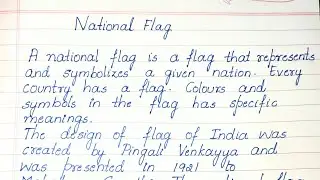 National Flag
A national flag is a flag that represents
and symbolizes a given nation. Every
country has a flag. Colours and
symbols in the flag has specific
meanings.
The design of flag of India was
created by Pingali Venkayya and
was presented in 1921 to